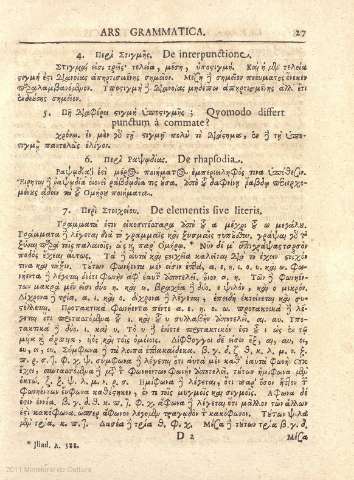 ARS GRAMMATICA. 27
4. Περὶ Στιγμῆς. De interpunctione.
Στιγμαί εἰσι τρεῖς· τελεία, μέση, ὑποστιγμή. Καὶ ἡ μὲν τελεία
στιγμή ἐστι διανοίας ἀπηρτισμένης σημεῖον. Μέση σημεῖον πνεύματος ἕνεκεν
παραλαμβανόμενον. Ὑποστιγμὴ διανοίας μηδέπω ἀπηρτισμένης ἀλλ' ἔτι
ἐνδεούσης σημεῖον.
5. Πῇ διαφέρει στιγμὴ ὑποστιγμῆς; Quomodo differt
punctum à commate?
χρόνῳ. ἐν μὲν γὰρ τῇ στιγμῇ πολὺ τὸ διάστημα, ἐν δὲ τῇ ὑπο-
στιγμῇ παντελῶς ὀλίγον.
6. Περὶ Ῥαψῳδίας. De rhapsodia.
Ῥαψῳδία ἐστὶ μέρος ποιήματος ἐμπεριειληφός τινα ὑπόθεσιν.
Εἴρηται ῥαψῳδία οἱονεὶ ῥαβδῳδία τις οὖσα, ἀπὸ τοῦ δαφνίνῃ ῥάβδῳ περιερχο-
μένους ᾄδειν τοῦ Ὁμήρου ποιήματα.
7. Περὶ Στοιχείου. De elementis sive literis.
Γράμματά ἐστιν εἰκοσιτέσσαρα ἀπὸ τοῦ α μέχρι τοῦ ω μεγάλου.
Γράμματα λέγεται διὰ τὸ γραμμαῖς καὶ ξυσμαῖς τυποῦσθαι, γράψαι γὰρ τὸ
ξῦσαι παρὰ τοῖς παλαιοῖς, ὡς παρ' Ὁμήρῳ. * Νῦν δέ μ' ἐπιγράψας ταρσὸν
ποδὸς εὔχεαι αὔτως. Τὰ αὐτὰ καὶ στοιχεῖα καλεῖται διὰ τὸ ἔχειν στοῖχόν
τινα καὶ τάξιν. Τούτων Φωνήεντα μέν εἰσιν ἑπτά, α. ε. η. ι. ο. υ. καὶ ω. Φω-
νήεντα λέγεται, διότι φωνὴν ἀφ' ἑαυτοῦ ἀποτελεῖ, οἷον α. η. Τῶν φωνηέν-
των μακρὰ μέν εἰσι δύο η. καὶ ω. Βραχέα δύο, ε ψιλόν, καὶ ο μικρόν.
Δίχρονα τρία, α. ι. καὶ υ. δίχρονα λέγεται, ἐπεὶ ἐκτείνεται καὶ συ-
στέλλεται. Προτακτικὰ φωνήεντα πέντε α. ε. η. ο. ω. προτακτικὰ λέ-
γεται, ὅτι προτασσόμενα τοῦ ι. καὶ υ. συλλαβὴν ἀποτελεῖ, αι. αυ. Ὑπο-
τακτικὰ δύο, ι. καὶ υ.
Δίφθογγοι
Σύμφωνα τὰ λοιπὰ ἑπτακαίδεκα. β. γ. δ. ζ. θ. κ. λ. μ. ν. ξ.
π. ρ. σ. τ. φ. χ. ψ. σύμφωνα λέγεται ὅτι αὐτὰ μὲν καθ' ἑαυτὰ φωνὴν οὐκ
ἔχει, συντασσόμενα μετὰ τῶν φωνηέντων φωνὴν ἀποτελεῖ. τούτων ἡμίφωνα μὲν
ὀκτώ, ζ. ξ. ψ. λ. μ. ν. ρ. σ. Ἡμίφωνα λέγεται, ὅτι παρ' ὅσον ἧττον τῶν
φωνηέντων εὔφωνα καθέστηκεν, ἔν τε τοῖς μυγμοῖς καὶ σιγμοῖς. Ἄφωνα δέ
ἐστιν ἐννέα. β. γ. δ. θ. κ. π. τ. φ. χ. ἄφωνα λέγεται ὅτι μᾶλλον τῶν ἄλλων
ἐστὶ κακόφωνα, ὥσπερ ἄφωνον λέγομεν τραγῳδὸν τὸν κακόφωνον. Τούτων ψιλὰ
μὲν τρία, κ. π. τ. Δασέα τρία θ. φ. χ. Μέσα τούτων τρία β. γ. δ.
D 2 Μέσα
* Iliad. Λ. 388.
2011 Ministerio de Cultura